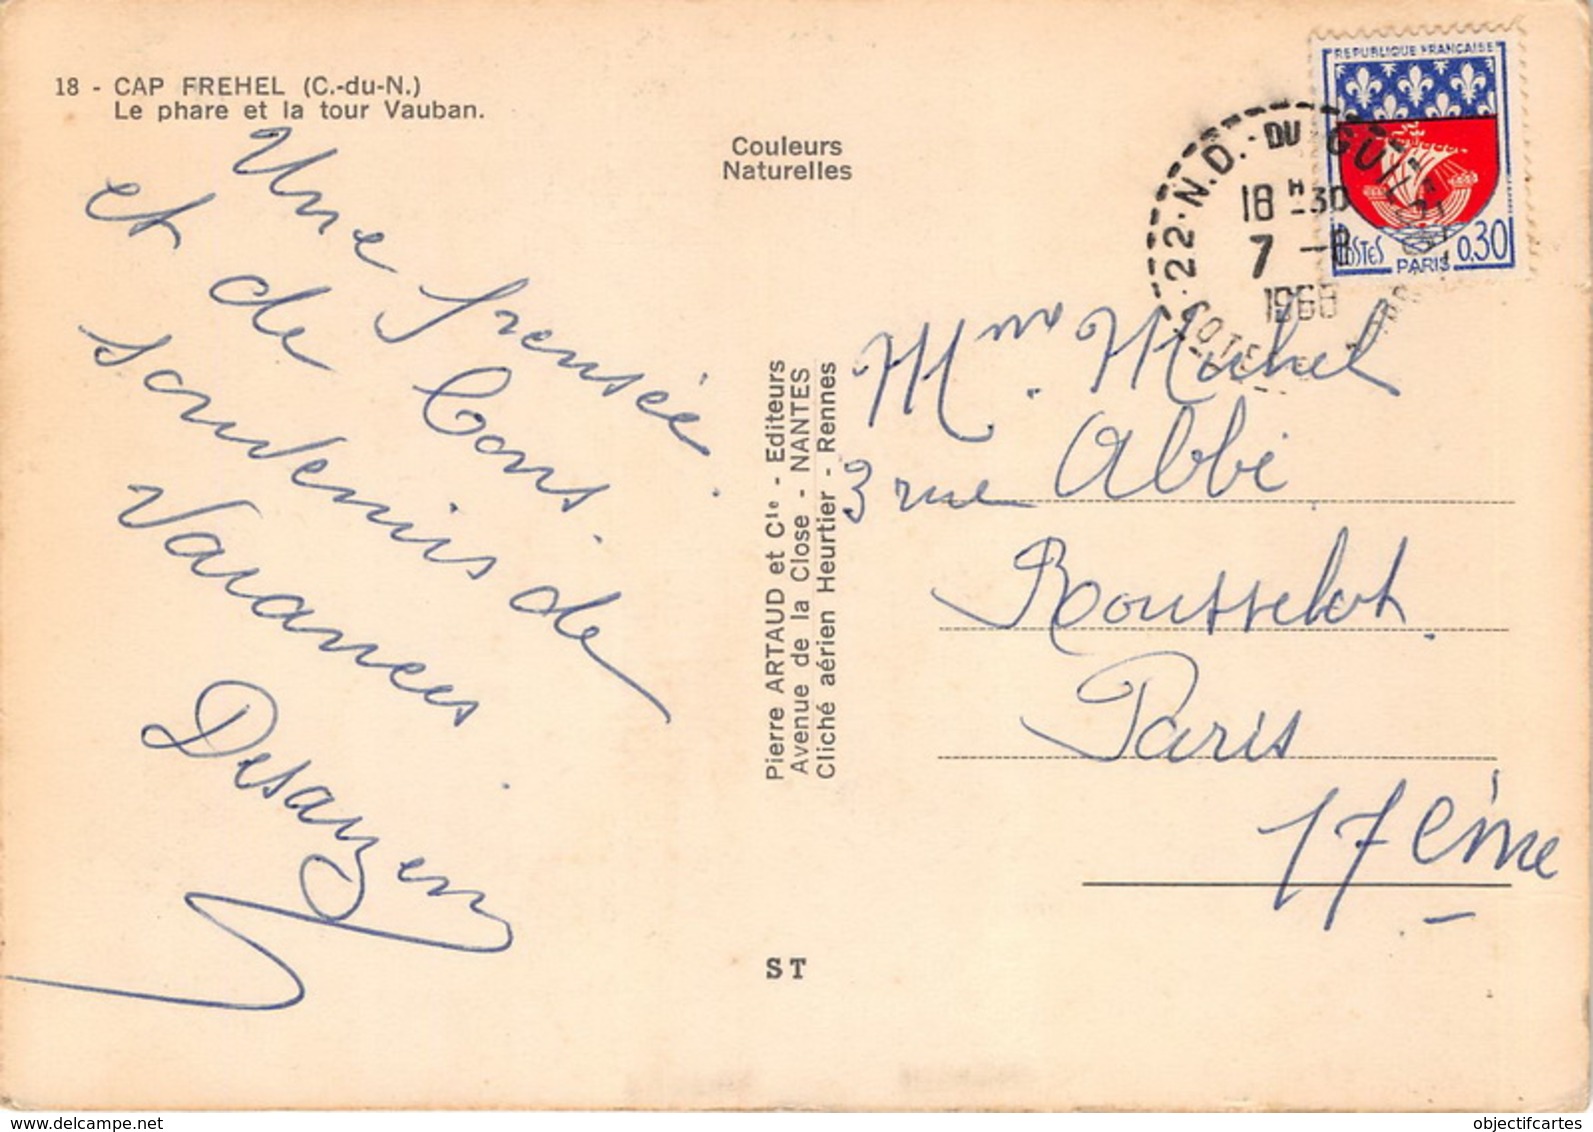 18 - CAP FREHEL (C.-du-N.)
Le phare et la tour Vauban.
Couleurs
Naturelles
Une pensée
et de bons
souvenirs de
Vacances
Desauzen
Pierre ARTAUD et Cie - Editeurs
Avenue de la Close - NANTES
Cliché aérien Heurtier - Rennes
ST
REPUBLIQUE FRANCAISE
POSTES
0,30
PARIS
22 N.D. DU GUIL
18 H 30
7 -8
Mme Michel
Abbé
3 rue
Rousselot
Paris
17 ème
objectifcartes